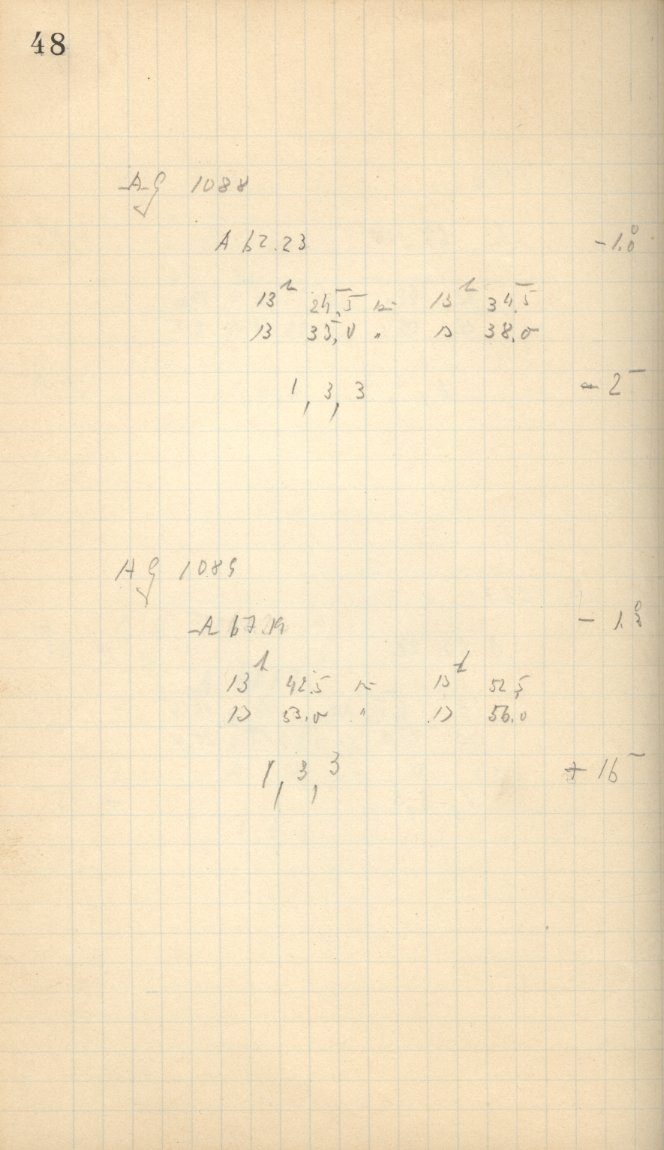 48
AG 1088
A 62.23 -1.°0
13h 24,5 13h 34,5
13 35,0 " 13 38,0
1, 3, 3 - 2
AG 1089
A 67.19 - 1.°3
13h 42.5 13h 52,5
13 53.0 " 13 56.0
1, 3, 3 + 16